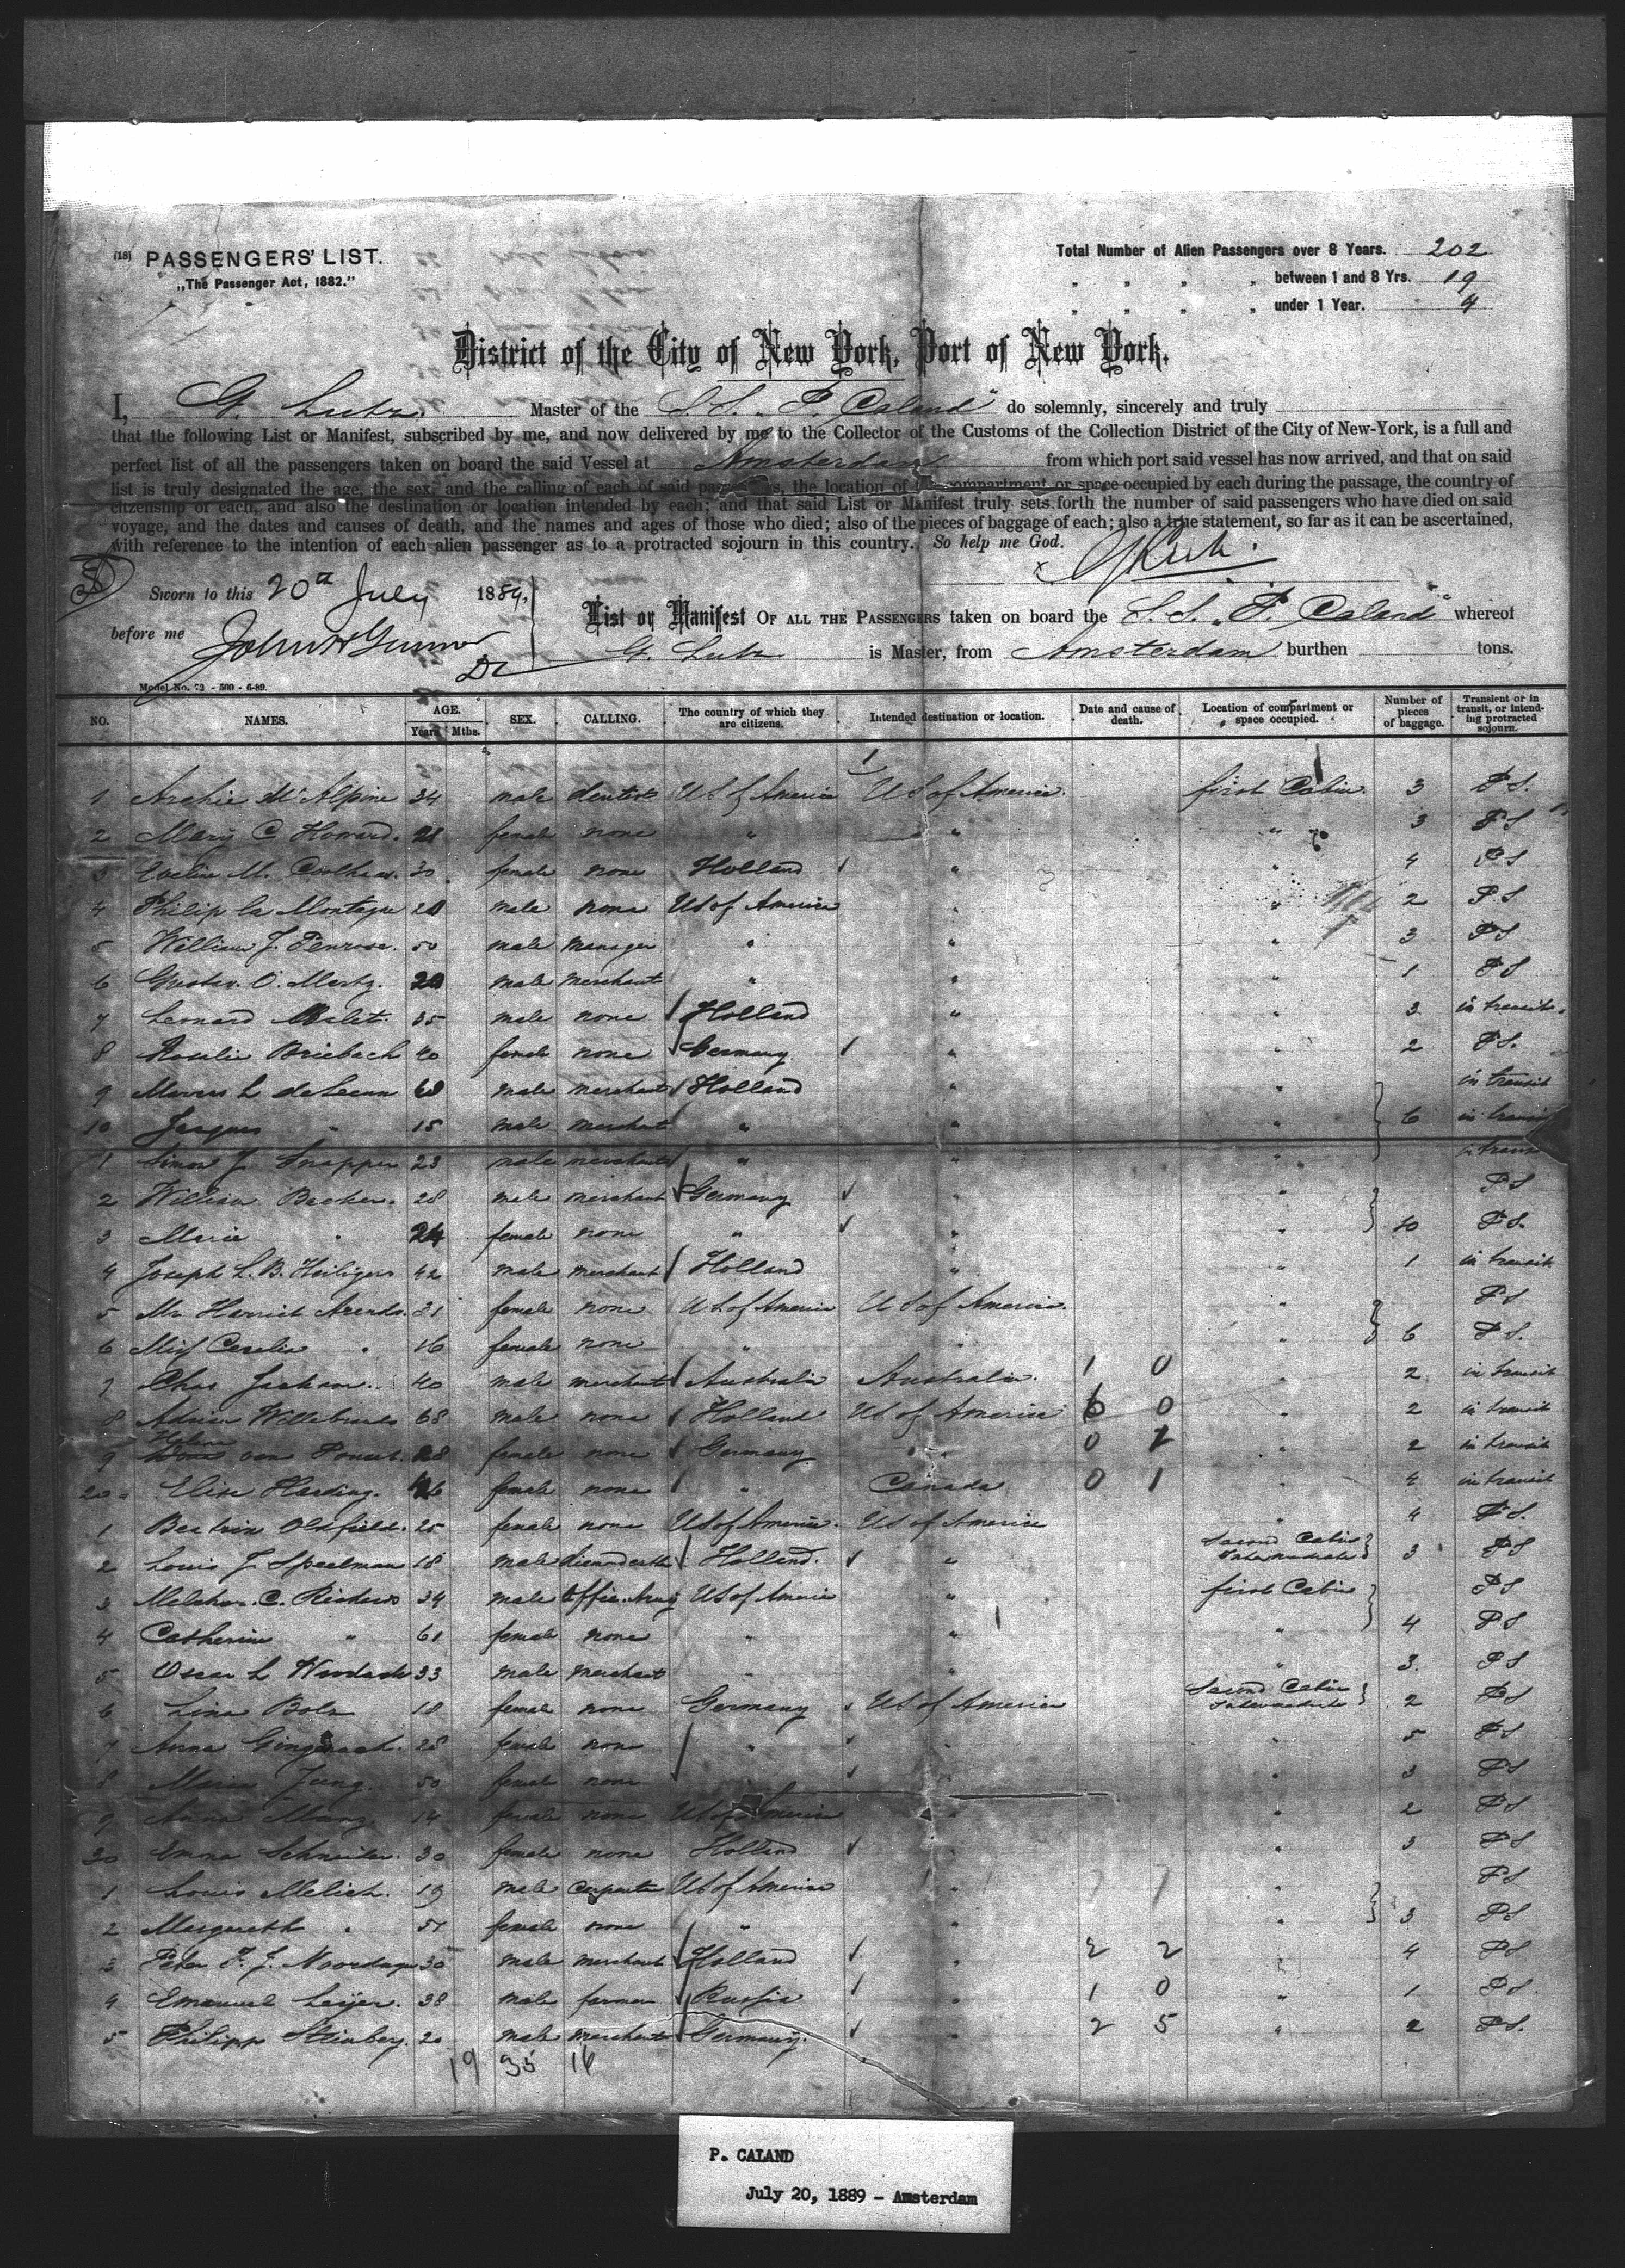 (18) PASSENGERS' LIST.
„The Passenger Act, 1882."
Total Number of Alien Passengers over 8 Years. 202
„ „ „ „ between 1 and 8 Yrs. 19
„ „ „ „ under 1 Year. 4
District of the City of New York, Port of New York.
I, G. Lutz. Master of the S.S. „P. Caland" do solemnly, sincerely and truly
that the following List or Manifest, subscribed by me, and now delivered by me to the Collector of the Customs of the Collection District of the City of New-York, is a full and
perfect list of all the passengers taken on board the said Vessel at Amsterdam from which port said vessel has now arrived, and that on said
list is truly designated the age, the sex, and the calling of each of said the location of compartment or space occupied by each during the passage, the country of
citizenship of each, and also the destination or location intended by each; and that said List or Manifest truly sets forth the number of said passengers who have died on said
voyage, and the dates and causes of death, and the names and ages of those who died; also of the pieces of baggage of each; also a true statement, so far as it can be ascertained,
with reference to the intention of each alien passenger as to a protracted sojourn in this country. So help me God.
Sworn to this 20th July 1889,
before me John
List or Manifest OF ALL THE PASSENGERS taken on board the S.S. „P. Caland" whereof
G. Lutz is Master, from Amsterdam burthen tons.
Model No. 72 - 500 - 6-89.
NO. NAMES. AGE. Years Mths. SEX. CALLING. The country of which they are citizens. Intended destination or location. Date and cause of death. Location of compartment or space occupied. Number of pieces of baggage. Transient or in transit, or intending protracted sojourn.
1 Archie McAlpine 34 male dentist US of America US of America. first Cabin 3 P.S.
2 Mary C Howard. female none " " " 3 P S
3 M. 30 female none Holland " " 4 P S
4 Philip la Montagu male none US of America " " 2 P S
5 William J. Penrose. 50 male manager " " " 3 P S
6 Gustav. O. Mertz. male merchant " " " 1 P S
7 Leonard 35 male none Holland " " 3 in transit.
8 Rosalie Briebach 40 female none Germany " " 2 P S.
9 L de Leeuw male merchant Holland " " in transit
10 Jacques " 15 male merchant " " " 6 in transit
1 Simon J. Snapper 23 male merchant " " " in transit
2 William Becker. 28 male merchant Germany " " P S
3 Marie " 24 female none " " " 10 P S.
4 Joseph L. B. Heiligers 42 male merchant Holland " " 1 in transit
5 Harriet Arends. 31 female none US of America US of America. " P S
6 Miss Cecelia " 16 female none " " " 6 P S.
7 Chas Jackson. 40 male merchant Australia Australia. 1 0 " 2 in transit
8 Adrian Willebrands 68 male none Holland US of America 0 " 2 in transit
9 Helene von 28 female none Germany " 0 " 2 in transit
20 Elise Harding. 26 female none " Canada 0 1 " 4 in transit
1 Beatrix Oldfield. 25 female none US of America. US of America " 4 P S.
2 Louis J. Speelman 18 male Holland. " Second Cabin Intermediate 3 P S
3 C. 34 male Officer Army US of America " first Cabin P S
4 Catherine " 61 female none " " " 4 P S
5 Oscar L 33 male merchant " " " 3. P S
6 Lina Bolz 18 female none Germany US of America Second Cabin Intermediate 2 P S
7 Anna 28 female none " " " 5 P S
8 Maria Jung. 50 female none " " " 3 P S
9 Anna 14 female none US of America " " 2 P S
30 Emma Schneider. 30 female none Holland " " 3 P S
1 Louis Melich. 19 male carpenter US of America " " P S
2 Margareth " female none " " " 3 P S
3 Peter F. J. 30 male merchant Holland " 2 2 " 4 P S
4 Emanuel Leijer. 38 male farmer Russia " 1 0 " 1 P S.
5 Philipp Steinberg. 20 male merchant Germany. " 2 5 " 2 P S.
19 35 16
P. CALAND
July 20, 1889 - Amsterdam